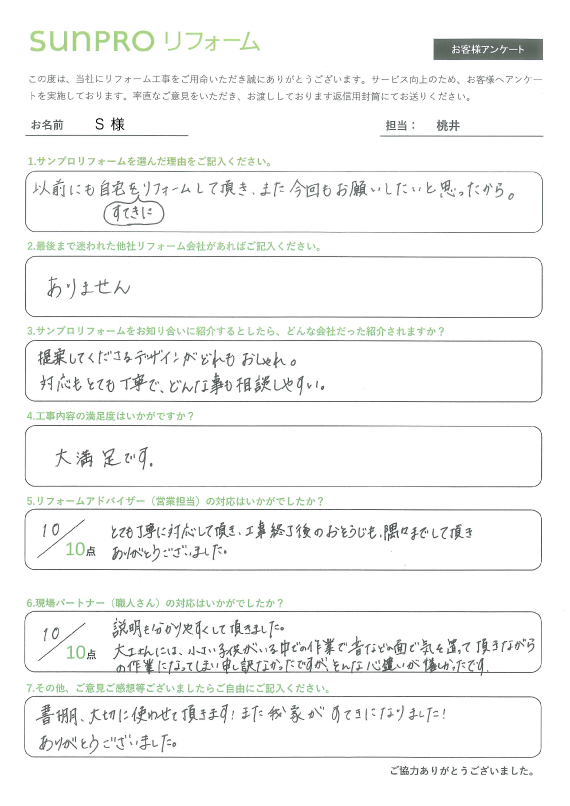 SUNPRO リフォーム
お客様アンケート
この度は、当社にリフォーム工事をご用命いただき誠にありがとうございます。サービス向上のため、お客様へアンケー
トを実施しております。率直なご意見をいただき、お渡ししております返信用封筒にてお送りください。
お名前 S 様
担当： 桃井
1.サンプロリフォームを選んだ理由をご記入ください。
以前にも自宅をリフォームして頂き、また今回もお願いしたいと思ったから。
すてきに
2.最後まで迷われた他社リフォーム会社があればご記入ください。
ありません
3.サンプロリフォームをお知り合いに紹介するとしたら、どんな会社だった紹介されますか？
提案してくださるデザインがどれもおしゃれ。
対応もとても丁寧で、どんな事も相談しやすい。
4.工事内容の満足度はいかがですか？
大満足です。
5.リフォームアドバイザー（営業担当）の対応はいかがでしたか？
10/10点
とても丁寧に対応して頂き、工事終了後のおそうじも、隅々までして頂き
ありがとうございました。
6.現場パートナー（職人さん）の対応はいかがでしたか？
10/10点
説明も分かりやすくして頂きました。
大工さんには、小さい子供がいる中での作業で音などの面で気を遣って頂きながら
の作業になってしまい申し訳なかったですが、そんな心遣いが嬉しかったです。
7.その他、ご意見ご感想等ございましたらご自由にご記入ください。
書棚、大切に使わせて頂きます！また我家がすてきになりました！
ありがとうございました。
ご協力ありがとうございました。